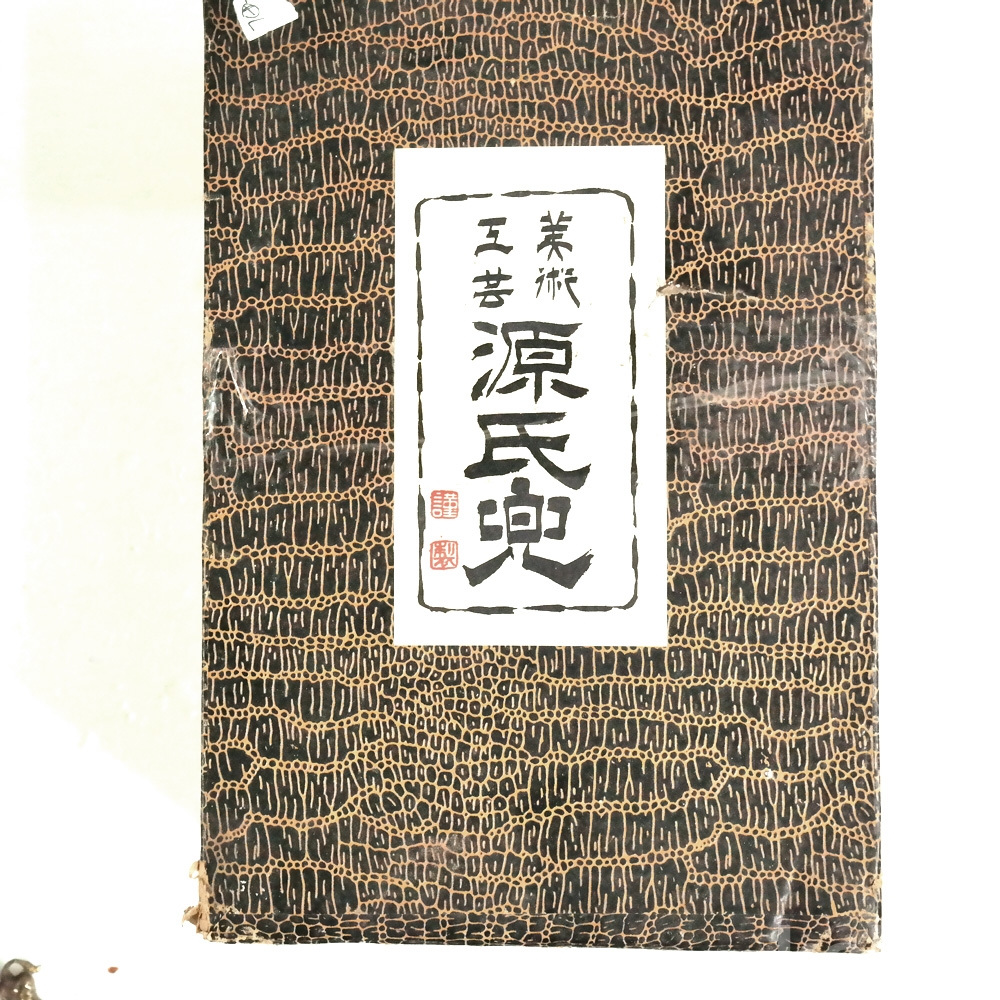 美術
工芸
源氏兜
謹製